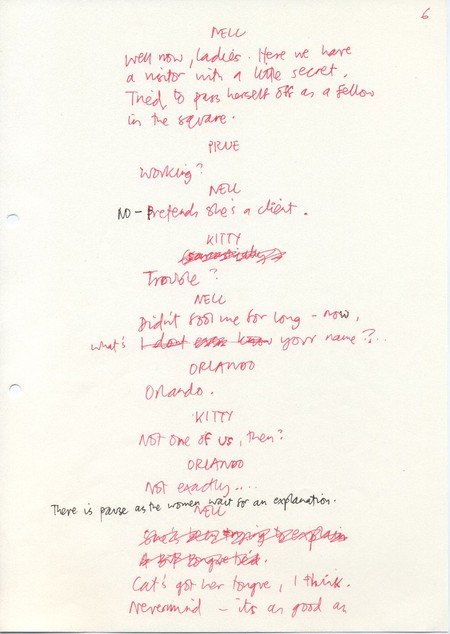 6
NELL
Well now, ladies. Here we have
a visitor with a little secret.
Tried to pass herself off as a fellow
in the square.
PRUE
Working?
NELL
NO - Pretends she's a client.
KITTY
Trouble?
NELL
Didn't fool me for long - now,
what's I don't even know your name?..
ORLANDO
Orlando.
KITTY
Not one of us, then?
ORLANDO
Not exactly....
There is pause as the women wait for an explanation.
NELL
Cat's got her tongue, I think.
Nevermind - its as good as